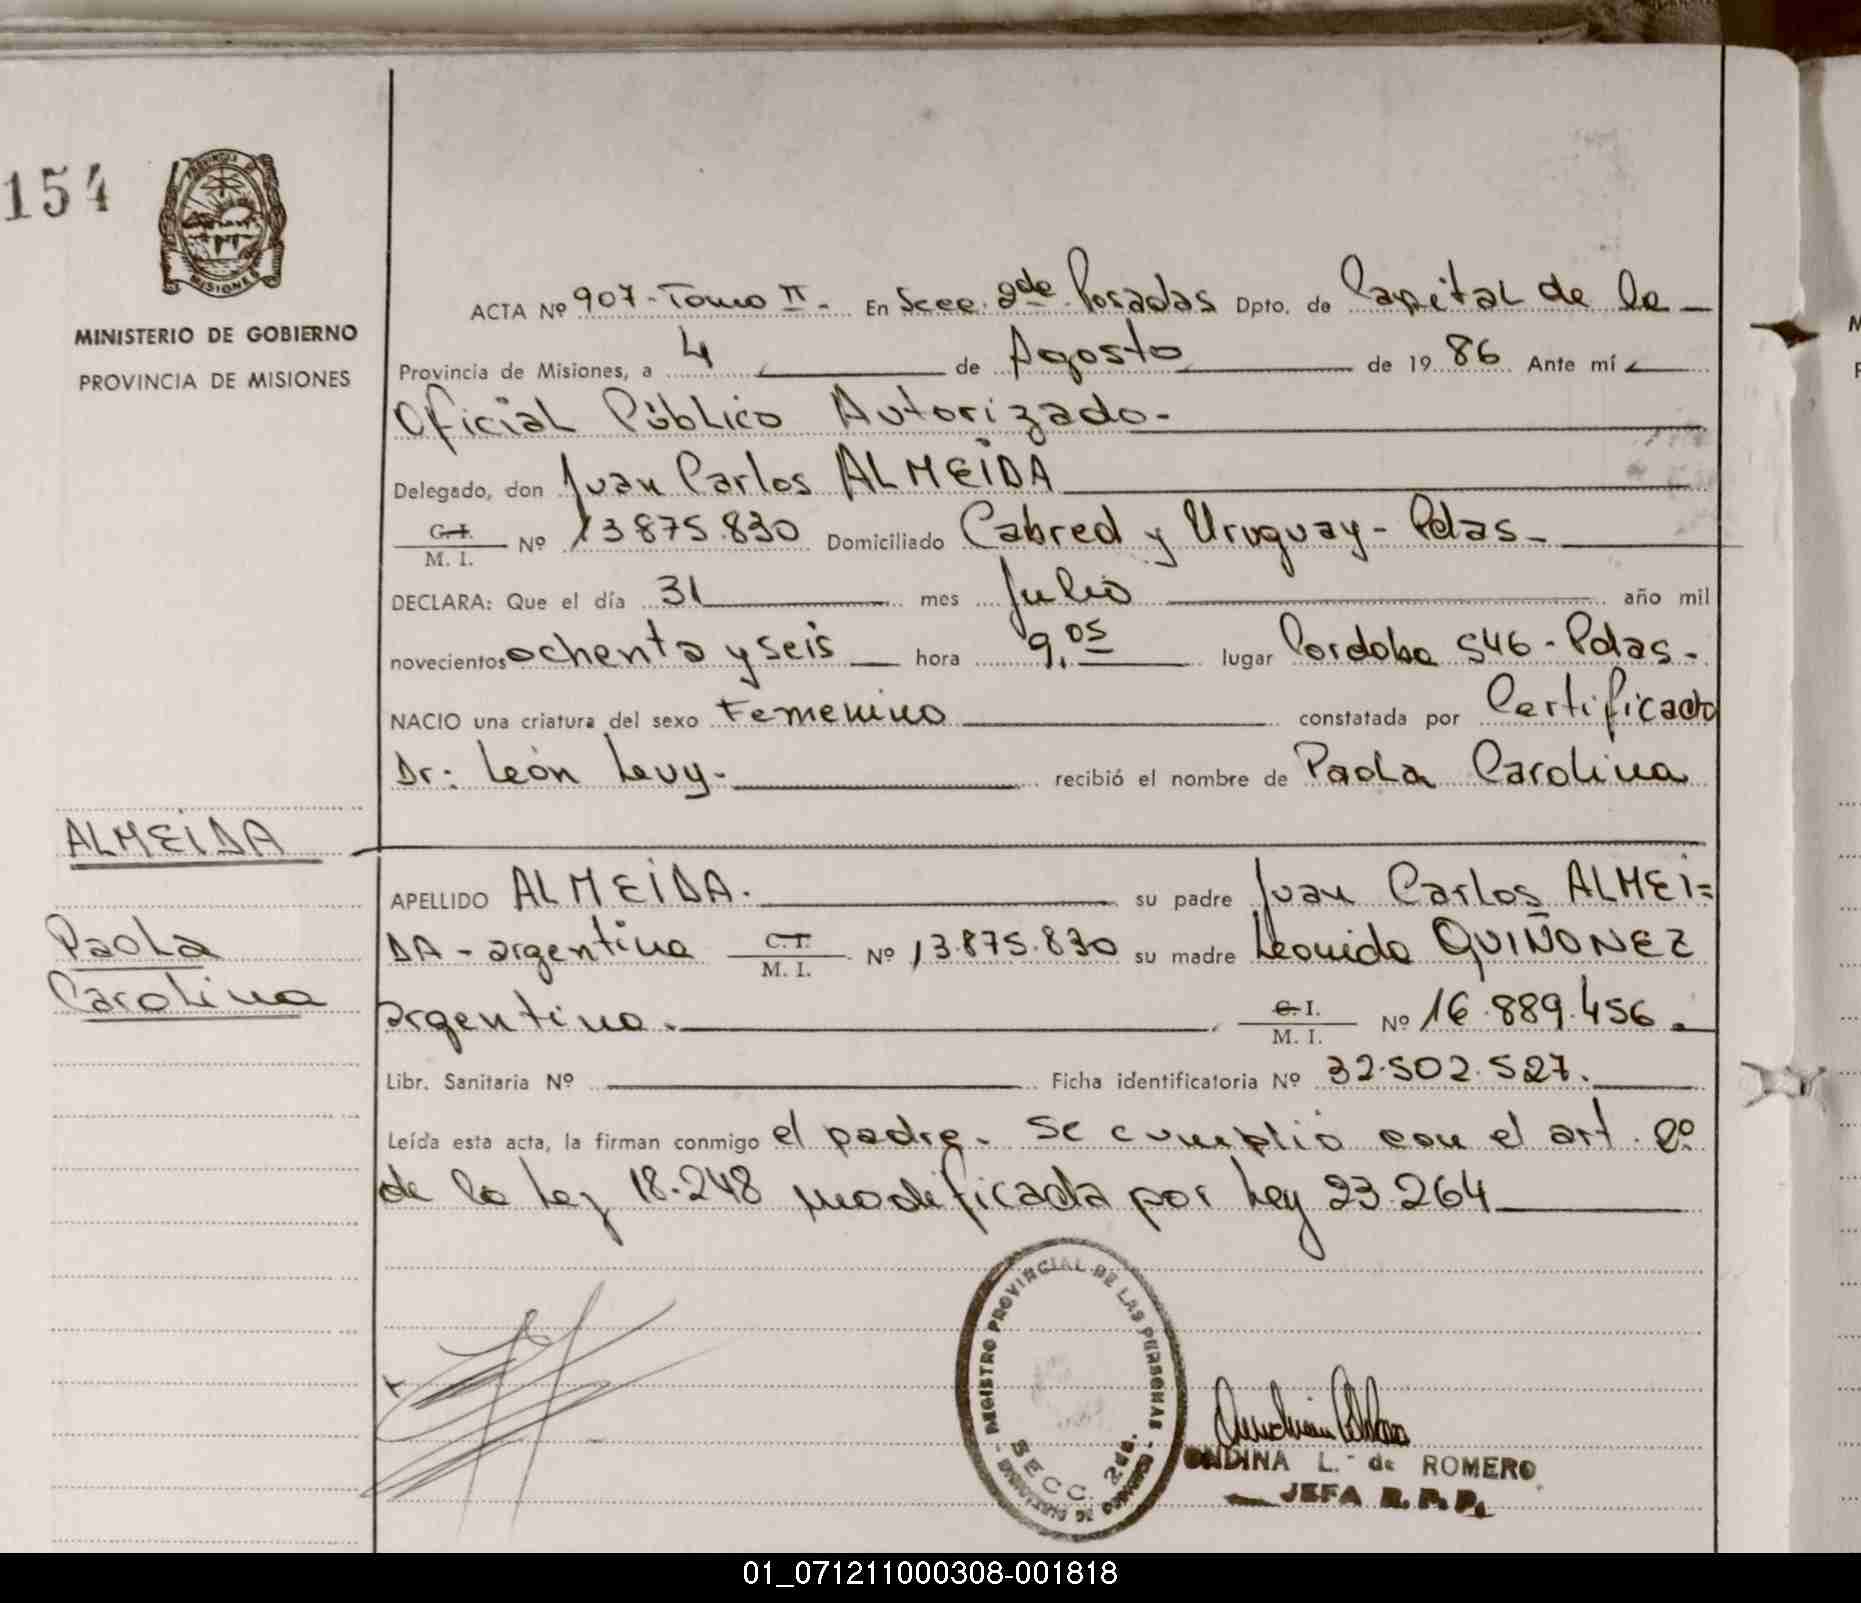 154
PROVINCIA DE
MISIONES
MINISTERIO DE GOBIERNO
PROVINCIA DE MISIONES
ACTA Nº 907 - Tomo II - En Secc. 2da Posadas Dpto. de Capital de la
Provincia de Misiones, a 4 de Agosto de 1986 Ante mí
Oficial Público Autorizado -
Delegado, don Juan Carlos ALMEIDA
C.I. / M. I. Nº 13.875.830 Domiciliado Cabred y Uruguay - Pdas -
DECLARA: Que el día 31 mes Julio año mil
novecientos ochenta y seis hora 9,05 lugar Cordoba 546 - Pdas -
NACIO una criatura del sexo Femenino constatada por Certificado
Dr: León Levy - recibió el nombre de Paola Carolina
ALMEIDA
Paola
Carolina
APELLIDO ALMEIDA. su padre Juan Carlos ALMEI=
DA - argentino C.I. / M. I. Nº 13.875.830 su madre Leonida QUIÑONEZ
argentina. C.I. / M. I. Nº 16.889.456.
Libr. Sanitaria Nº Ficha identificatoria Nº 32.502.527.
Leída esta acta, la firman conmigo el padre - Se cumplio con el art. 2º
de la Ley 18.248 modificada por Ley 23.264
REGISTRO PROVINCIAL DE LAS PERSONAS
SECC. 2da.
ONDINA L. de ROMERO
JEFA R. P. P.
01_071211000308-001818